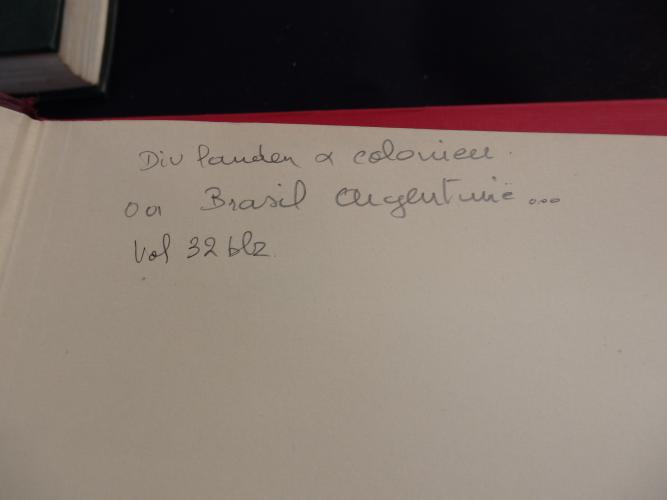 Div landen & colonien.
o a Brasil Argentinië ...
Vol 32 blz